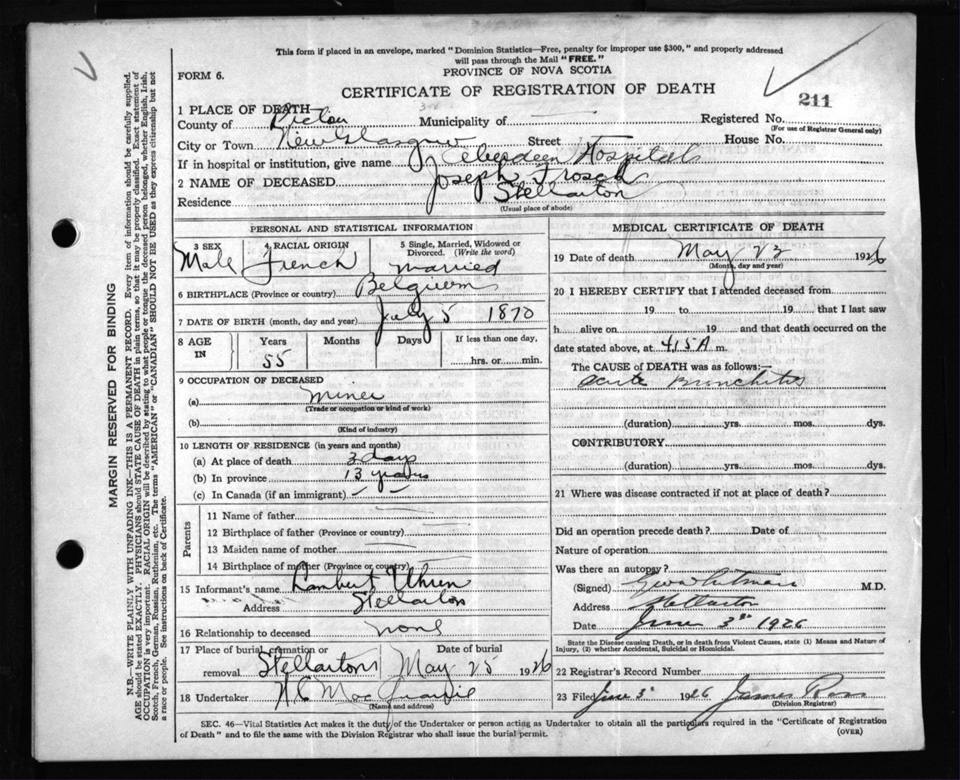 This form if placed in an envelope, marked "Dominion Statistics—Free, penalty for improper use $300," and properly addressed
will pass through the Mail "FREE."
FORM 6.
PROVINCE OF NOVA SCOTIA
CERTIFICATE OF REGISTRATION OF DEATH
211
1 PLACE OF DEATH
County of Pictou Municipality of Registered No.
(For use of Registrar General only)
City or Town New Glasgow Street House No.
If in hospital or institution, give name Aberdeen Hospital
2 NAME OF DECEASED Joseph Frosch
Residence Stellarton
(Usual place of abode)
PERSONAL AND STATISTICAL INFORMATION
3 SEX 4 RACIAL ORIGIN 5 Single, Married, Widowed or Divorced. (Write the word)
Male French married
6 BIRTHPLACE (Province or country) Belgium
7 DATE OF BIRTH (month, day and year) July 5 1870
8 AGE IN Years Months Days If less than one day,
55 hrs. or min.
9 OCCUPATION OF DECEASED
(a) miner
(Trade or occupation or kind of work)
(b)
(Kind of industry)
10 LENGTH OF RESIDENCE (in years and months)
(a) At place of death 3 days
(b) In province 13 years
(c) In Canada (if an immigrant)
Parents
11 Name of father
12 Birthplace of father (Province or country)
13 Maiden name of mother
14 Birthplace of mother (Province or country)
15 Informant's name Lambert
Address Stellarton
16 Relationship to deceased none
17 Place of burial, cremation or removal Date of burial
Stellarton May 25 1926
18 Undertaker
(Name and address)
MEDICAL CERTIFICATE OF DEATH
19 Date of death May 23 1926
(Month, day and year)
20 I HEREBY CERTIFY that I attended deceased from
19 to 19 that I last saw
h alive on 19 and that death occurred on
date stated above, at 4.15 A m.
The CAUSE of DEATH was as follows:—
acute Bronchitis
(duration) yrs. mos. dys.
CONTRIBUTORY
(duration) yrs. mos. dys.
21 Where was disease contracted if not at place of death?
Did an operation precede death? Date of
Nature of operation
Was there an autopsy?
(Signed) M.D.
Address Stellarton
Date June 3rd 1926
State the Disease causing Death, or in death from Violent Causes, state (1) Means and Nature of
Injury, (2) whether Accidental, Suicidal or Homicidal.
22 Registrar's Record Number
23 Filed June 3 1926 James Ross
(Division Registrar)
SEC. 46—Vital Statistics Act makes it the duty of the Undertaker or person acting as Undertaker to obtain all the particulars required in the "Certificate of Registration
of Death" and to file the same with the Division Registrar who shall issue the burial permit.
(OVER)
MARGIN RESERVED FOR BINDING
N.B.—WRITE PLAINLY WITH UNFADING INK—THIS IS A PERMANENT RECORD. Every item of information should be carefully supplied.
AGE should be stated EXACTLY. PHYSICIANS should STATE CAUSE OF DEATH in plain terms, so that it may be properly classified. Exact statement of
OCCUPATION is very important. RACIAL ORIGIN will be described by stating to what people or tongue the deceased person belonged, whether English, Irish,
Scotch, French, German, Russian, Ruthenian, etc. The terms "AMERICAN" or "CANADIAN" SHOULD NOT BE USED as they express citizenship but not
a race or people. See instructions on back of Certificate.